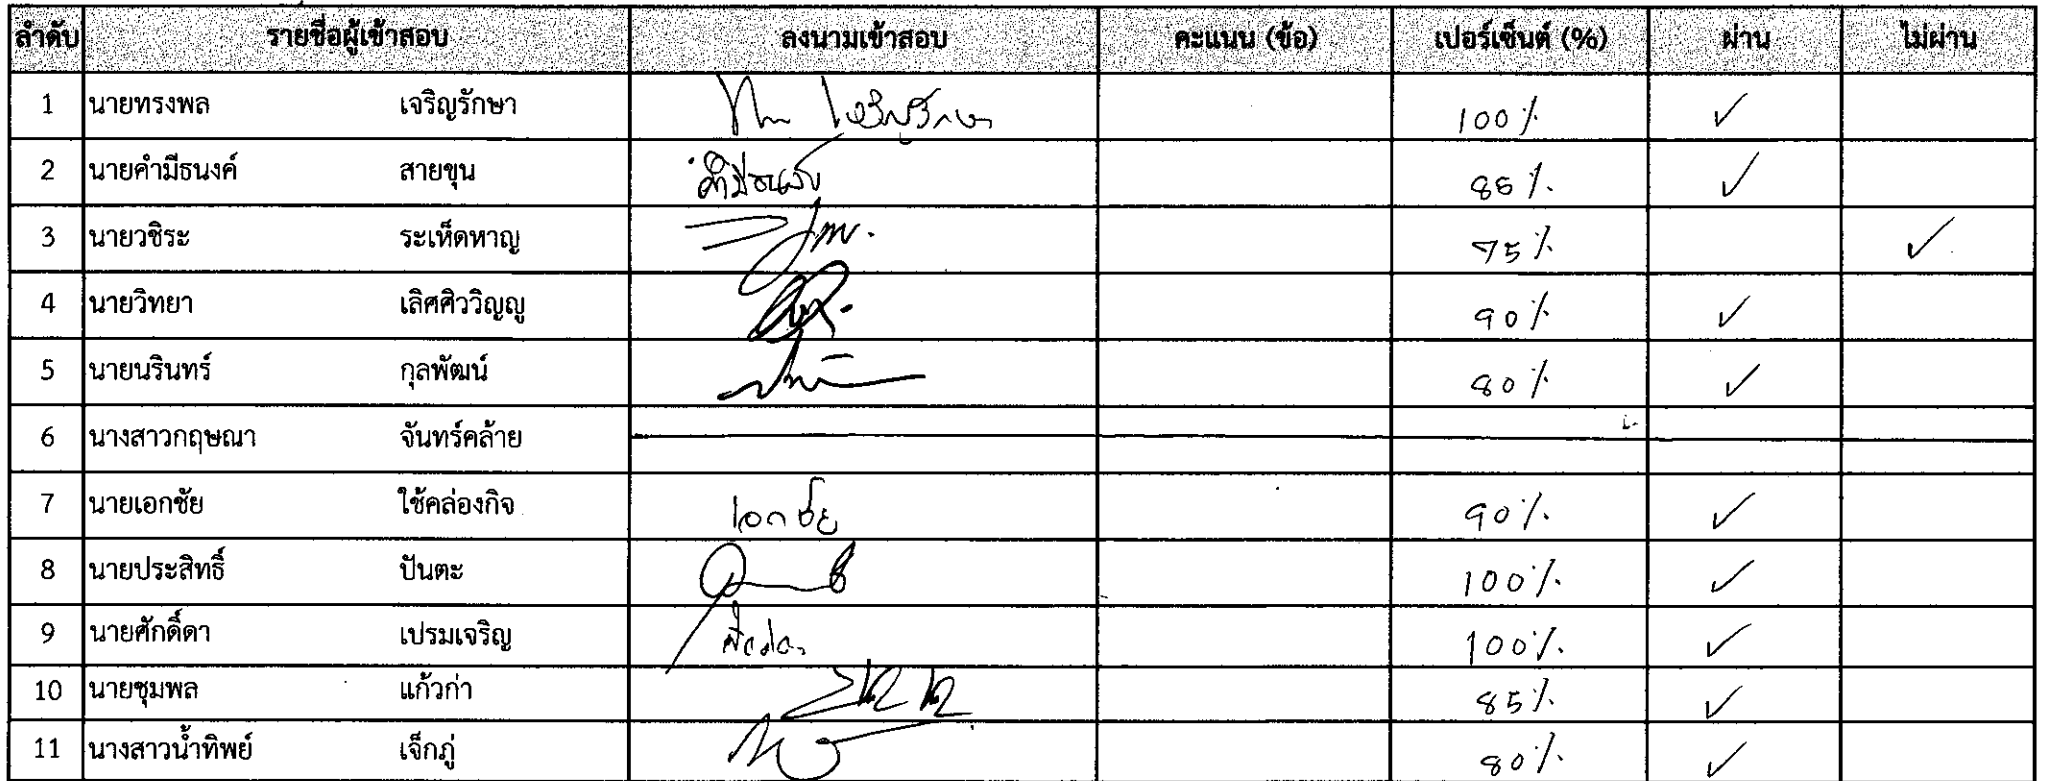 ลำดับ รายชื่อผู้เข้าสอบ ลงนามเข้าสอบ คะแนน (ข้อ) เปอร์เซ็นต์ (%) ผ่าน ไม่ผ่าน
1 นายทรงพล เจริญรักษา 100%
2 นายคำมีธนงค์ สายขุน 85%
3 นายวชิระ ระเห็ดหาญ 75%
4 นายวิทยา เลิศศิววิญญู 90%
5 นายนรินทร์ กุลพัฒน์ 80%
6 นางสาวกฤษณา จันทร์คล้าย
7 นายเอกชัย ใช้คล่องกิจ เอกชัย 90%
8 นายประสิทธิ์ ปันตะ 100%
9 นายศักดิ์ดา เปรมเจริญ 100%
10 นายชุมพล แก้วก่า 85%
11 นางสาวน้ำทิพย์ เจ็กภู่ 80%